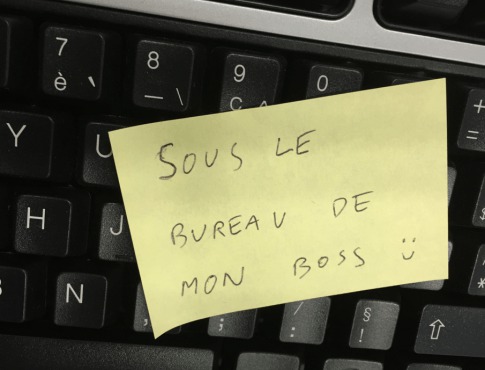 7 8 9 0 +
è ` _ \ ç ^ =
Y U
SOUS LE
H J
BUREAU DE
MON BOSS :)
N , ; / §
; : !